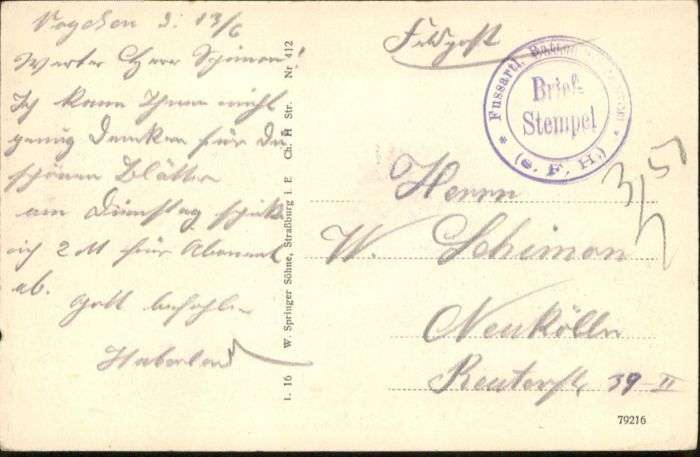 13/6
Werter Herr Schimon!
Ich kann Ihnen nicht
genug danken für die
schönen Blätter
am Dienstag schick
ich 2 M für Abonnent
ab.
Gott befohlen
Haberland
1. 16 W. Springer Söhne, Straßburg i. E Ch. H Str. Nr 412
Feldpost
* Fussartl. Batterie *
Brief-
Stempel
(s. F. H.)
Herrn
W. Schimon
Neukölln
Reuterstr. 39-II
79216